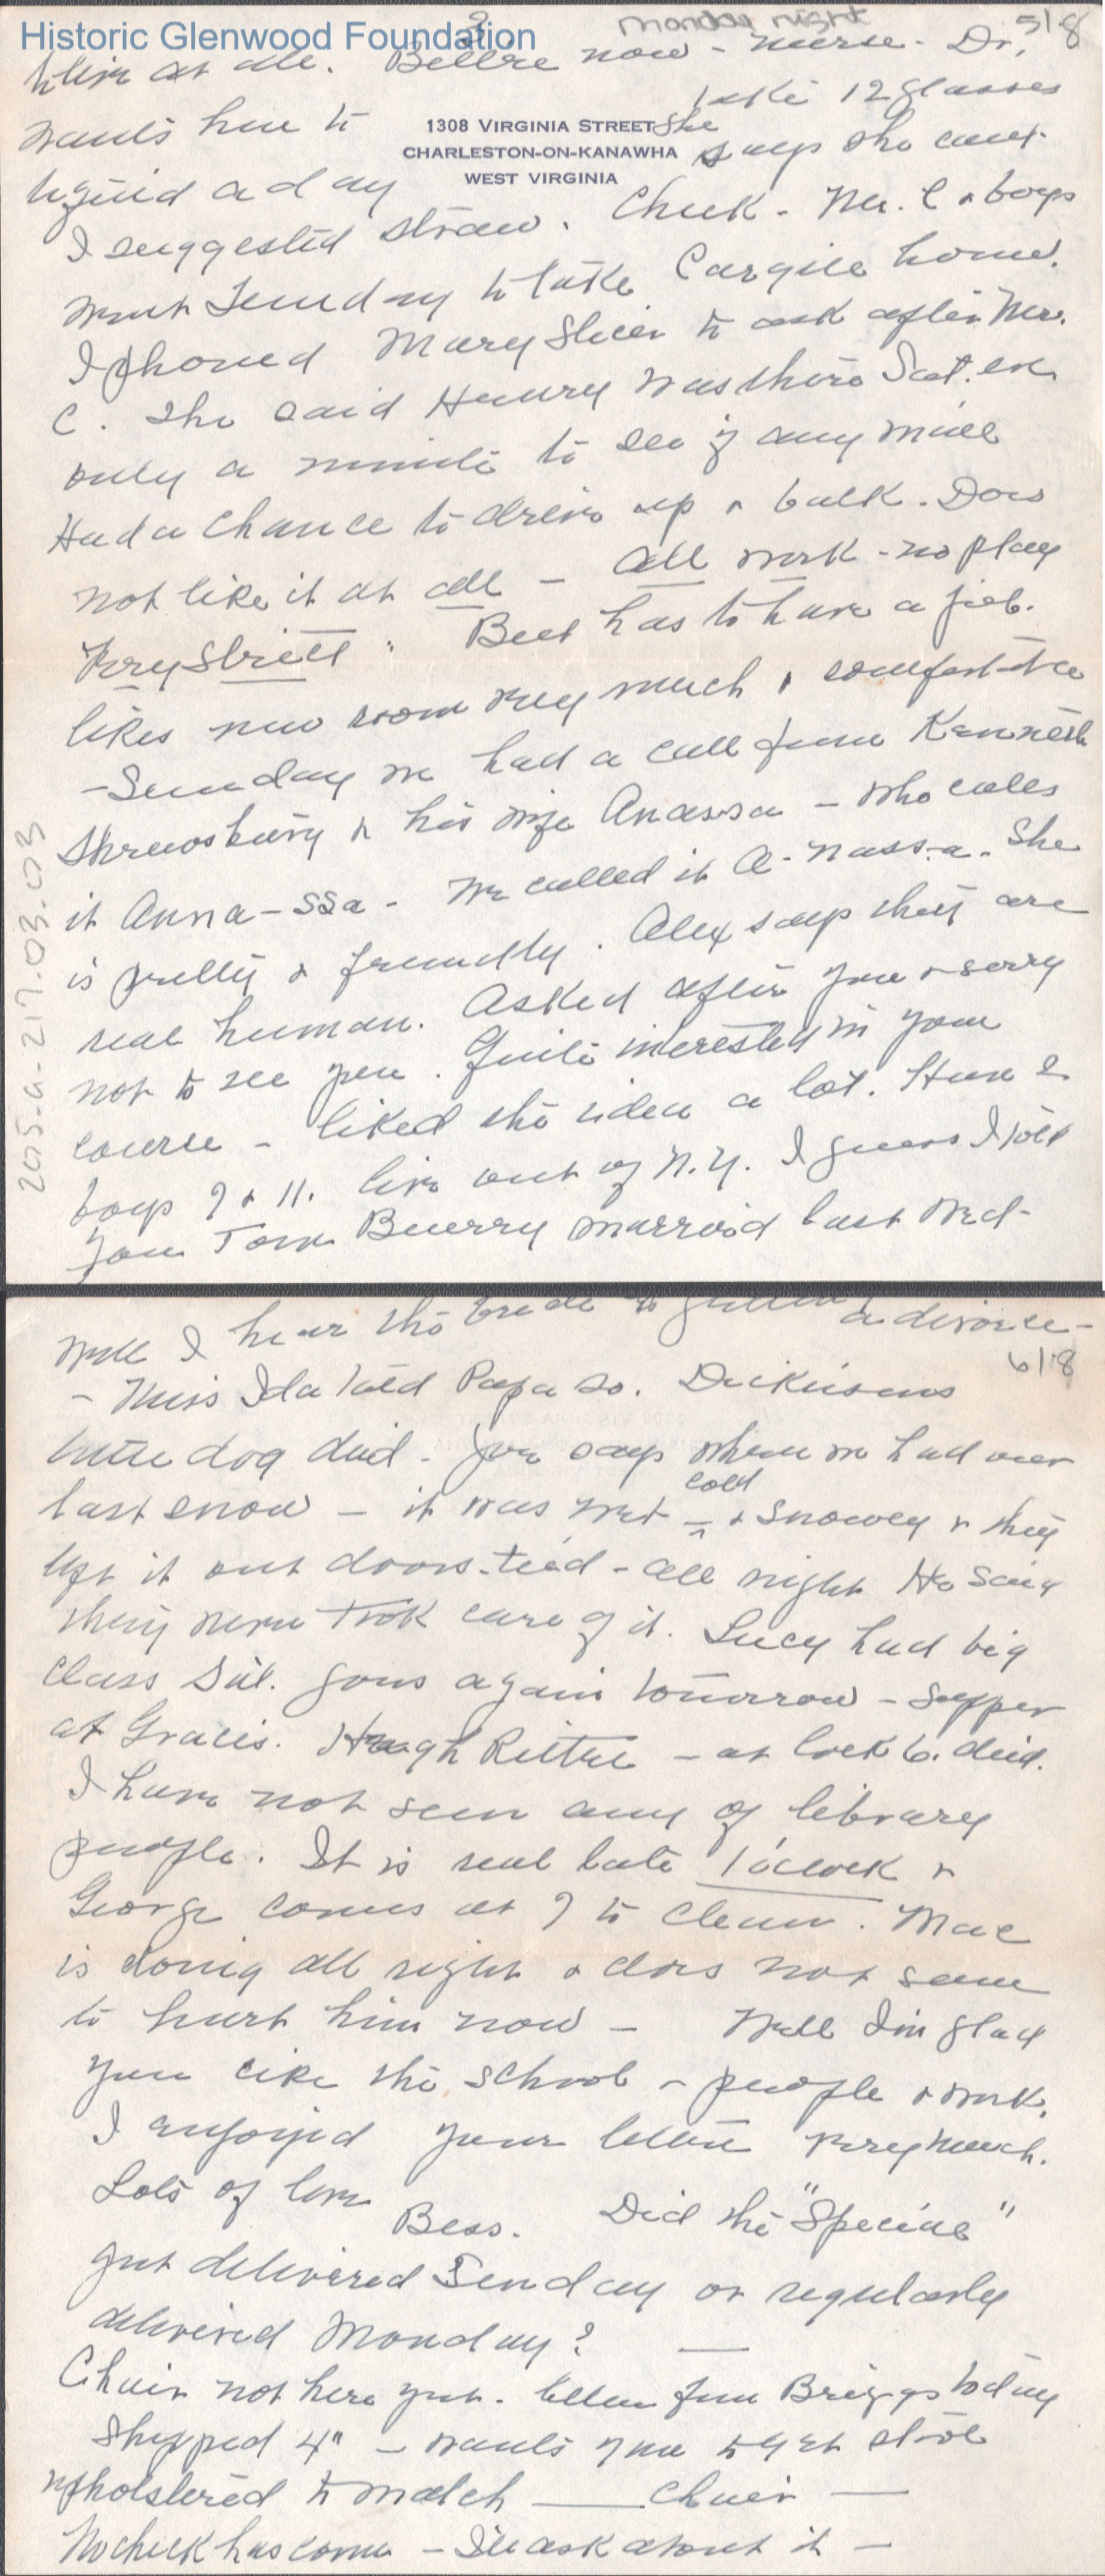 Historic Glenwood Foundation
3
Monday night
5/8
him at all. Better now - nurse. Dr.
wants her to take 12 glasses
1308 VIRGINIA STREET
CHARLESTON-ON-KANAWHA
WEST VIRGINIA
liquid a day She says she cant
I suggested straw. Chuck - Mr. C & boys
went Sunday to take Cargile home.
I phoned Mary Slicer to ask after Mrs.
C. She said Henry was there Sat. eve
only a minute to see if any mail
Had a chance to drive up & back. Does
not like it at all - all work - no play
Very Strict. has to have a job.
likes new room very much & comfortable
- Sunday we had a call from Kenneth
Shrewsbury & his wife Anassa - who calls
it Anna-ssa - We called it A-nass-a. She
is pretty & friendly. Alex says they are
real human. Asked after you & sorry
not to see you. Quite interested in your
course - liked the idea a lot. Have 2
boys 9 & 11. live out of N.Y. I guess I told
you Tom married last Wed-
205-a-217.03.03
6/8
Well I hear the bride is getting a divorce -
- Miss Ida told Papa so. Dickinsons
little dog died. Joe says when we had our
last snow - it was wet - cold & snowey & they
left it out doors - tied - all night He said
they never took care of it. Lucy had big
class Sat. goes again tomorrow - supper
at Gracis. Hugh - at lock 6. died.
I have not seen any of library
people. It is real late 1 o'clock &
George comes at 9 to clean. Mac
is doing all right & does not seem
to hurt him now - Well I'm glad
you like the school - people & work.
I enjoyed your letter very much.
Lots of love
Bess. Did the "Special"
get delivered Sunday or regularly
delivered Monday?
Chair not here yet. letter from Briggs today
shipped 4" - wants you to get stool
upholstered to match chair
No check has come - I'll ask about it -